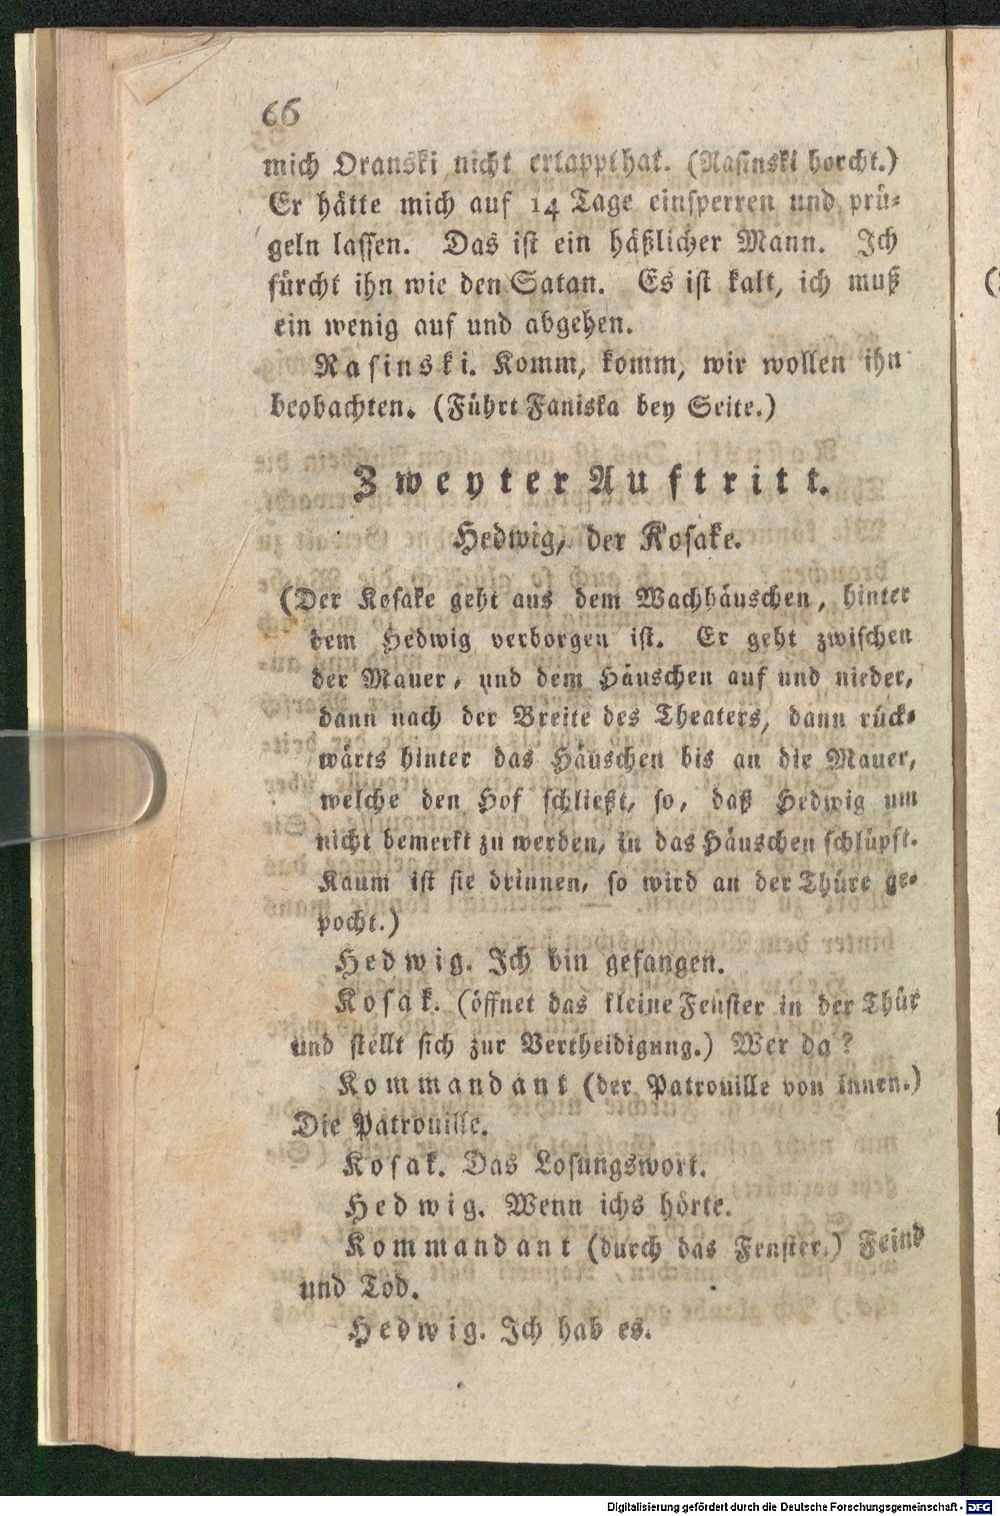 66
mich Oranski nicht ertappt hat. (Rasinski horcht.)
Er hätte mich auf 14 Tage einsperren und prü-
geln lassen. Das ist ein häßlicher Mann. Ich
fürcht ihn wie den Satan. Es ist kalt, ich muß
ein wenig auf und abgehen.
Rasinski. Komm, komm, wir wollen ihn
beobachten. (Führt Faniska bey Seite.)
Zweyter Auftritt.
Hedwig, der Kosake.
(Der Kosake geht aus dem Wachhäuschen, hinter
dem Hedwig verborgen ist. Er geht zwischen
der Mauer, und dem Häuschen auf und nieder,
dann nach der Breite des Theaters, dann rück-
wärts hinter das Häuschen bis an die Mauer,
welche den Hof schließt, so, daß Hedwig um
nicht bemerkt zu werden, in das Häuschen schlüpft.
Kaum ist sie drinnen, so wird an der Thüre ge-
pocht.)
Hedwig. Ich bin gefangen.
Kosak. (öffnet das kleine Fenster in der Thür
und stellt sich zur Vertheidigung.) Wer da?
Kommandant (der Patrouille von innen.)
Die Patrouille.
Kosak. Das Losungswort.
Hedwig. Wenn ichs hörte.
Kommandant (durch das Fenster.) Feind
und Tod.
Hedwig. Ich hab es.
Digitalisierung gefördert durch die Deutsche Forschungsgemeinschaft - DFG